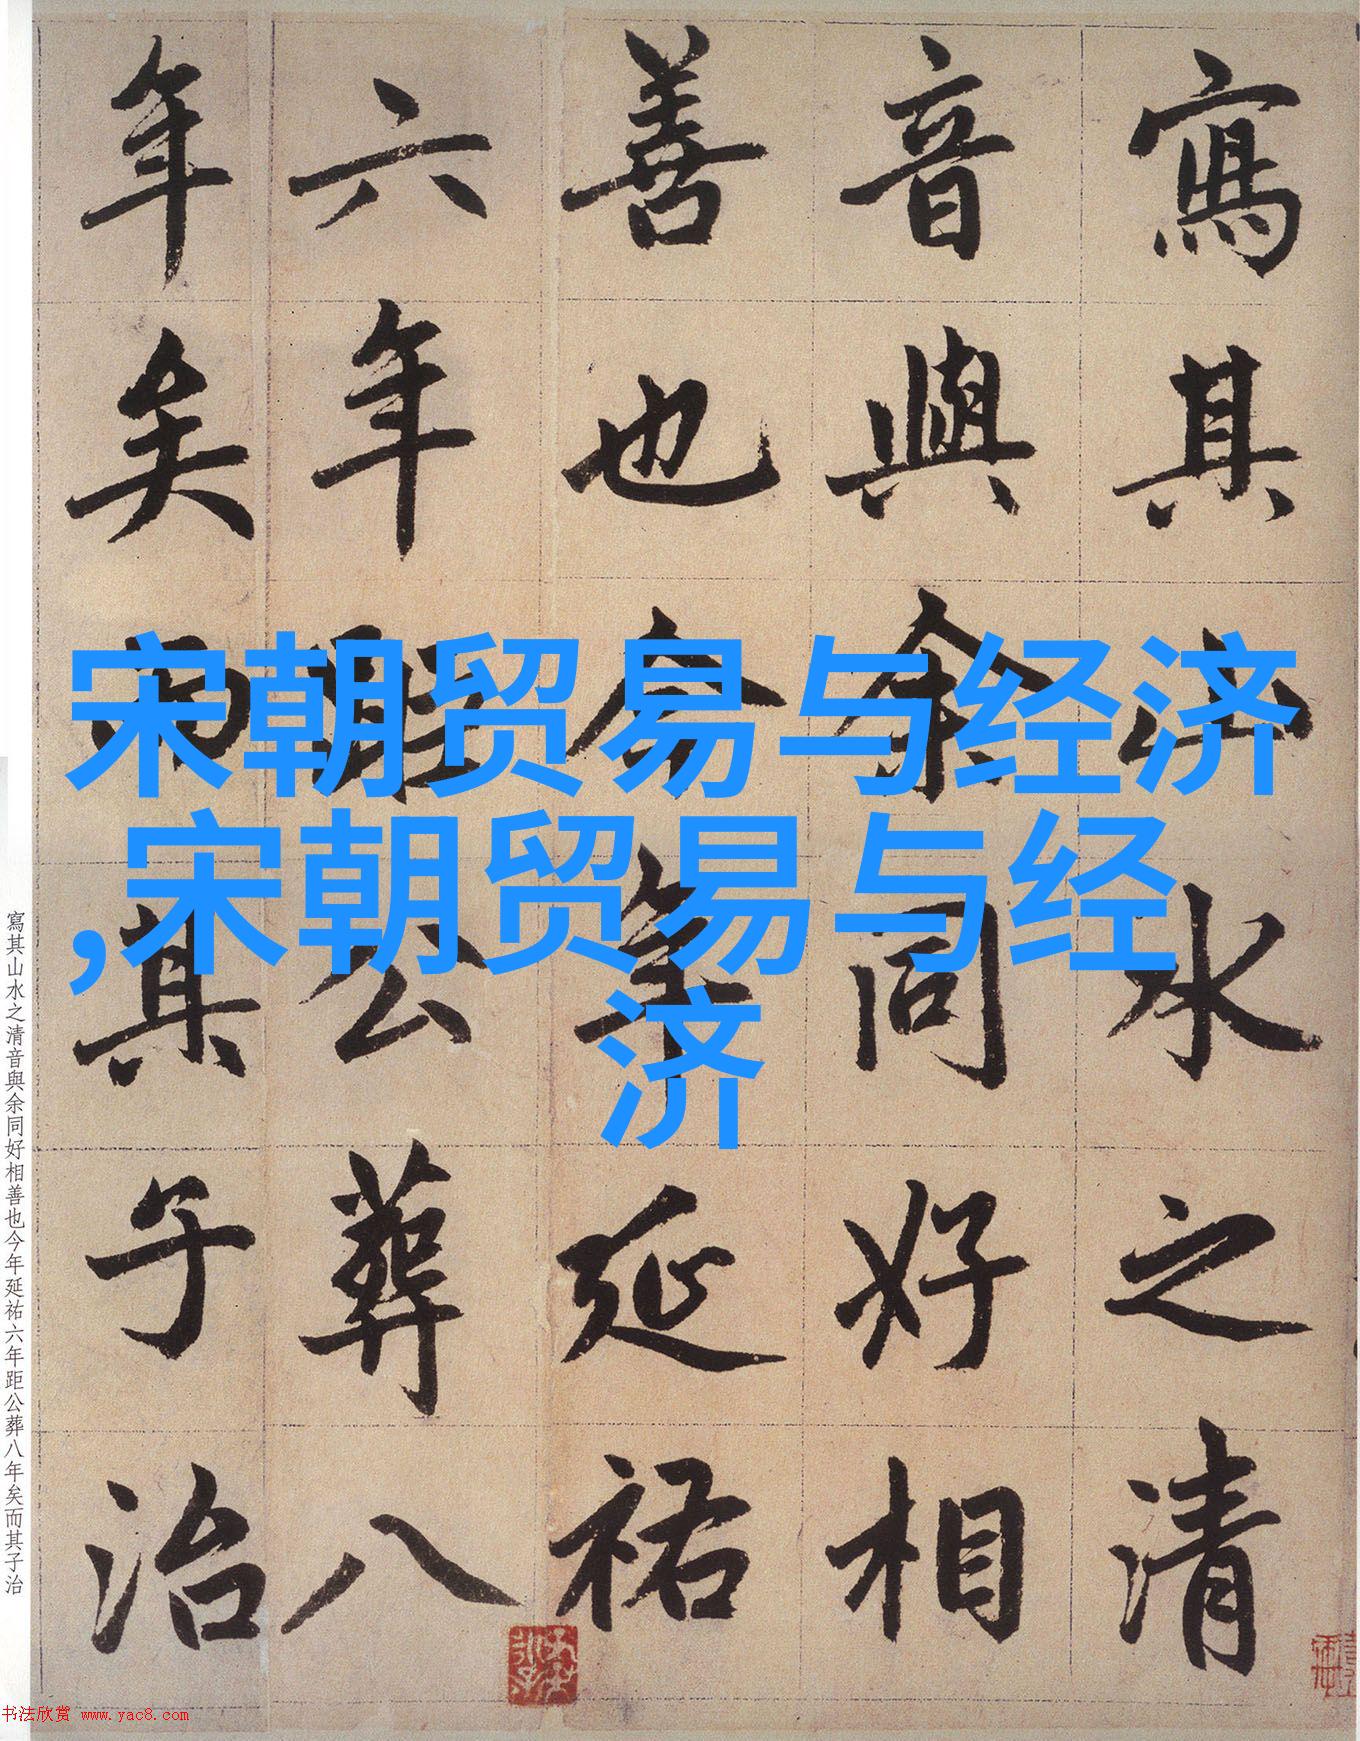 寫其山水之清
音與余同好相
善也今年延祐
六年距公葬八
年矣而其子治
宋朝贸易与经济
,宋朝贸易与经
济
寫其山水之清音與余同好相善也今年延祐六年距公葬八年矣而其子治
书法欣赏 www.yac8.com